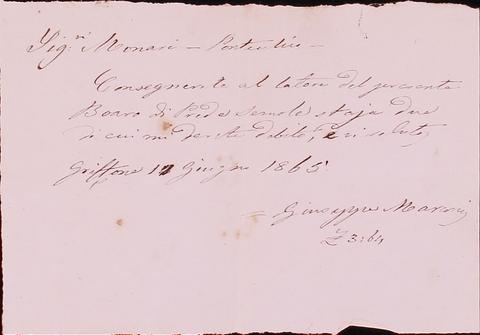 Sig.ri Monari — Pontechio —
Consegnerete al latore del presente
Boaro di Prede Semole staja due
di cui mi darete debito, e vi saluto
Griffone 17 Giugno 1865
= Giuseppe
£ 3:64